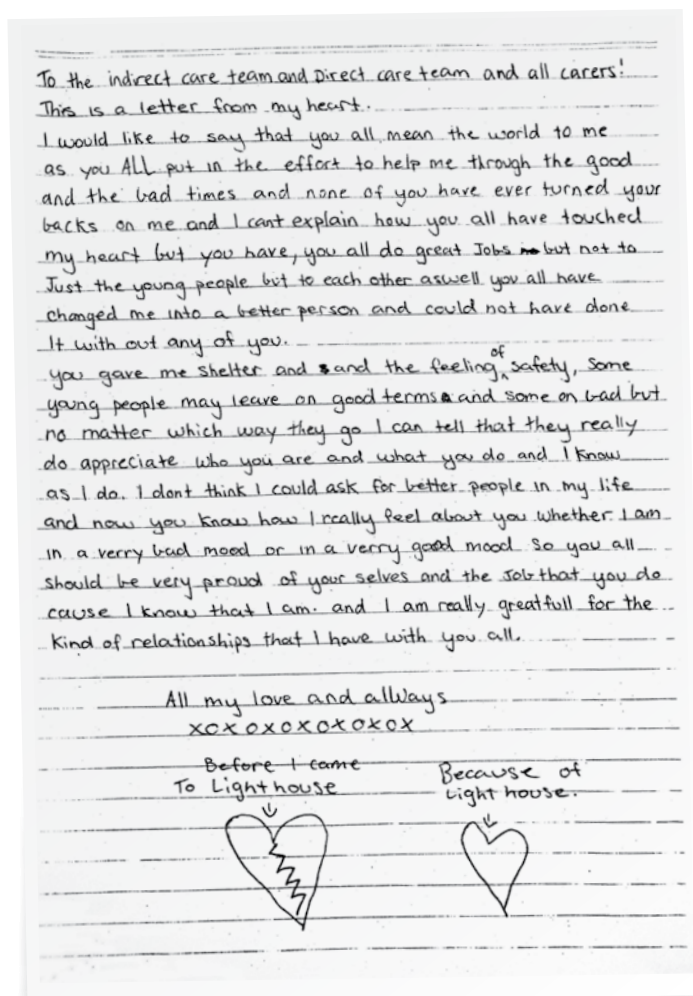 To the indirect care team and Direct care team and all carers!
This is a letter from my heart.
I would like to say that you all mean the world to me
as you ALL put in the effort to help me through the good
and the bad times and none of you have ever turned your
backs on me and I cant explain how you all have touched
my heart but you have, you all do great Jobs but not to
Just the young people but to each other aswell you all have
changed me into a better person and could not have done
It with out any of you.
you gave me shelter and and the feeling of safety, some
young people may leave on good terms and some on bad but
no matter which way they go I can tell that they really
do appreciate who you are and what you do and I know
as I do. I dont think I could ask for better people in my life
and now you know how I really feel about you whether I am
in a verry bad mood or in a verry good mood so you all
should be very proud of your selves and the Job that you do
cause I know that I am. and I am really greatfull for the
kind of relationships that I have with you all.
All my love and allways
xoxoxoxoxoxox
Before I came
To Lighthouse
Because of
Light house.